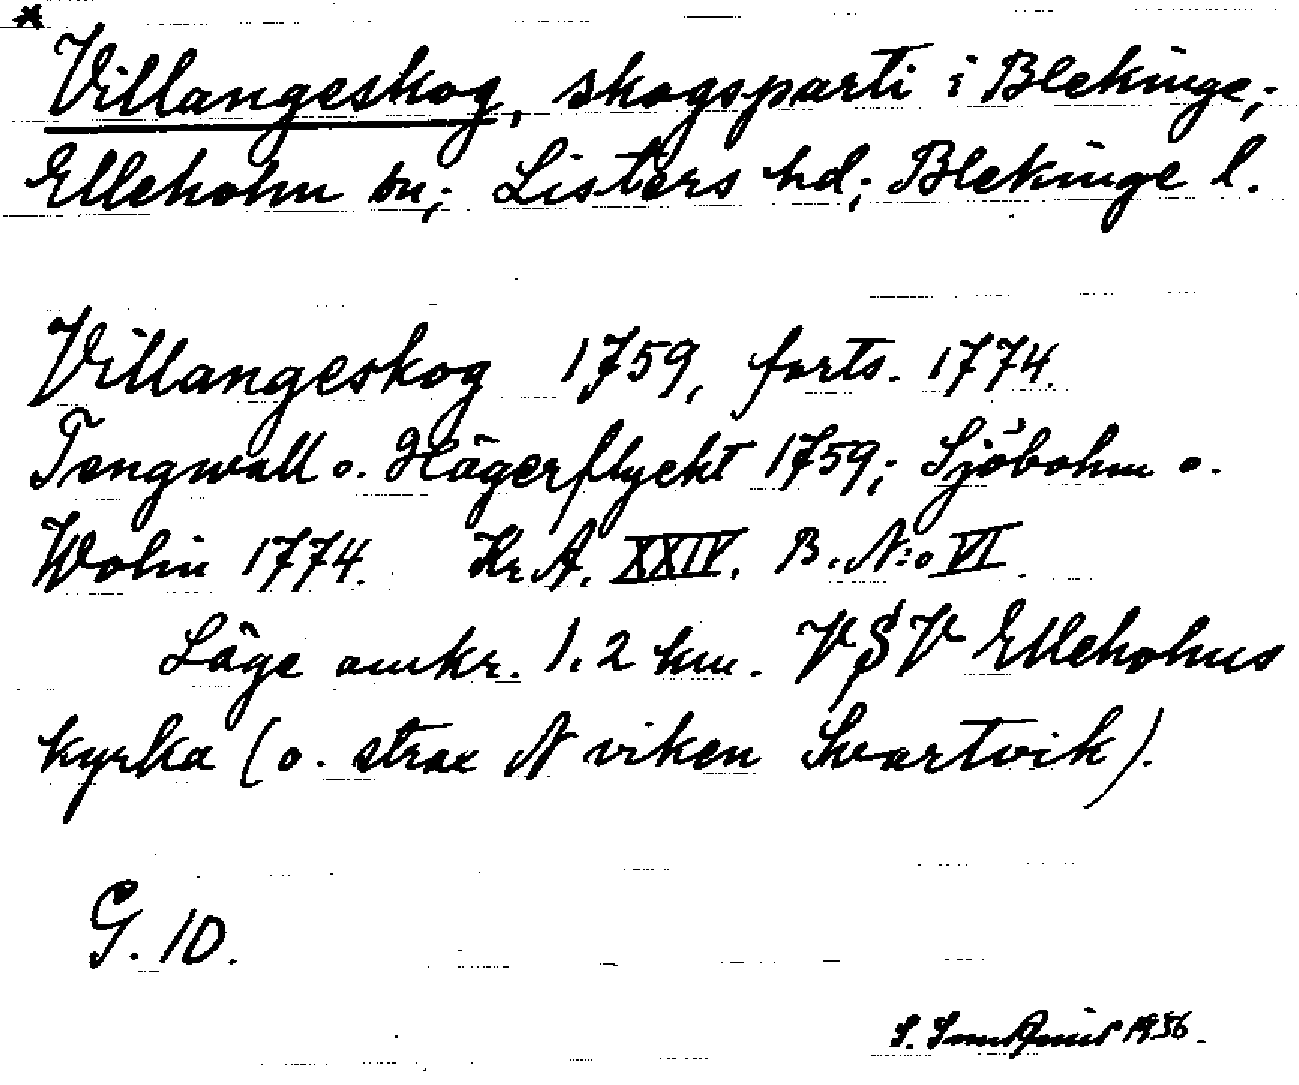 *
Villangeskog, skogsparti i Blekinge,;
Ellehohn sn,; Listers hd,; Blekinge l.
Villangeskog 1759, forts. 1774.
Tengwall o. Hägerflyckt 1759,; Sjöbohm o.
Wolin 1774. Kr. A. XXIV. B. N:o VI.
Läge omkr. 1.2 km. VSV Ellehohns
kyrka (o. strax N viken Svartvik).
G. 10.
S. 1956.